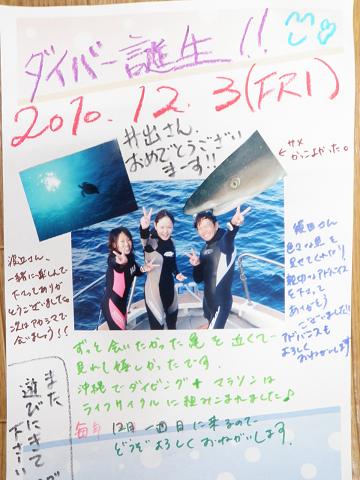 ダイバー誕生!!
2010.12.3(FRI)
井出さん、
おめでとうござい
まーす!!
←サメ
かっこよかった。
渡辺さん、
一緒に楽しんで
下さってありが
とうございました。
会いましょう!!
飯田さん
色々な魚を
見せてくれたり
親切にアドバイス
を下さって
ありがとう
ございました!!
アドバンスも
よろしく
おねがいします。
ずっと会いたかった亀を近くで
見れし嬉しかったです。
沖縄でダイビング+マラソンは
ライフサイクルに組みこまれました♪
毎年12月一週目に来るので
どうぞよろしくおねがいします。
また
遊びにきて
下さい